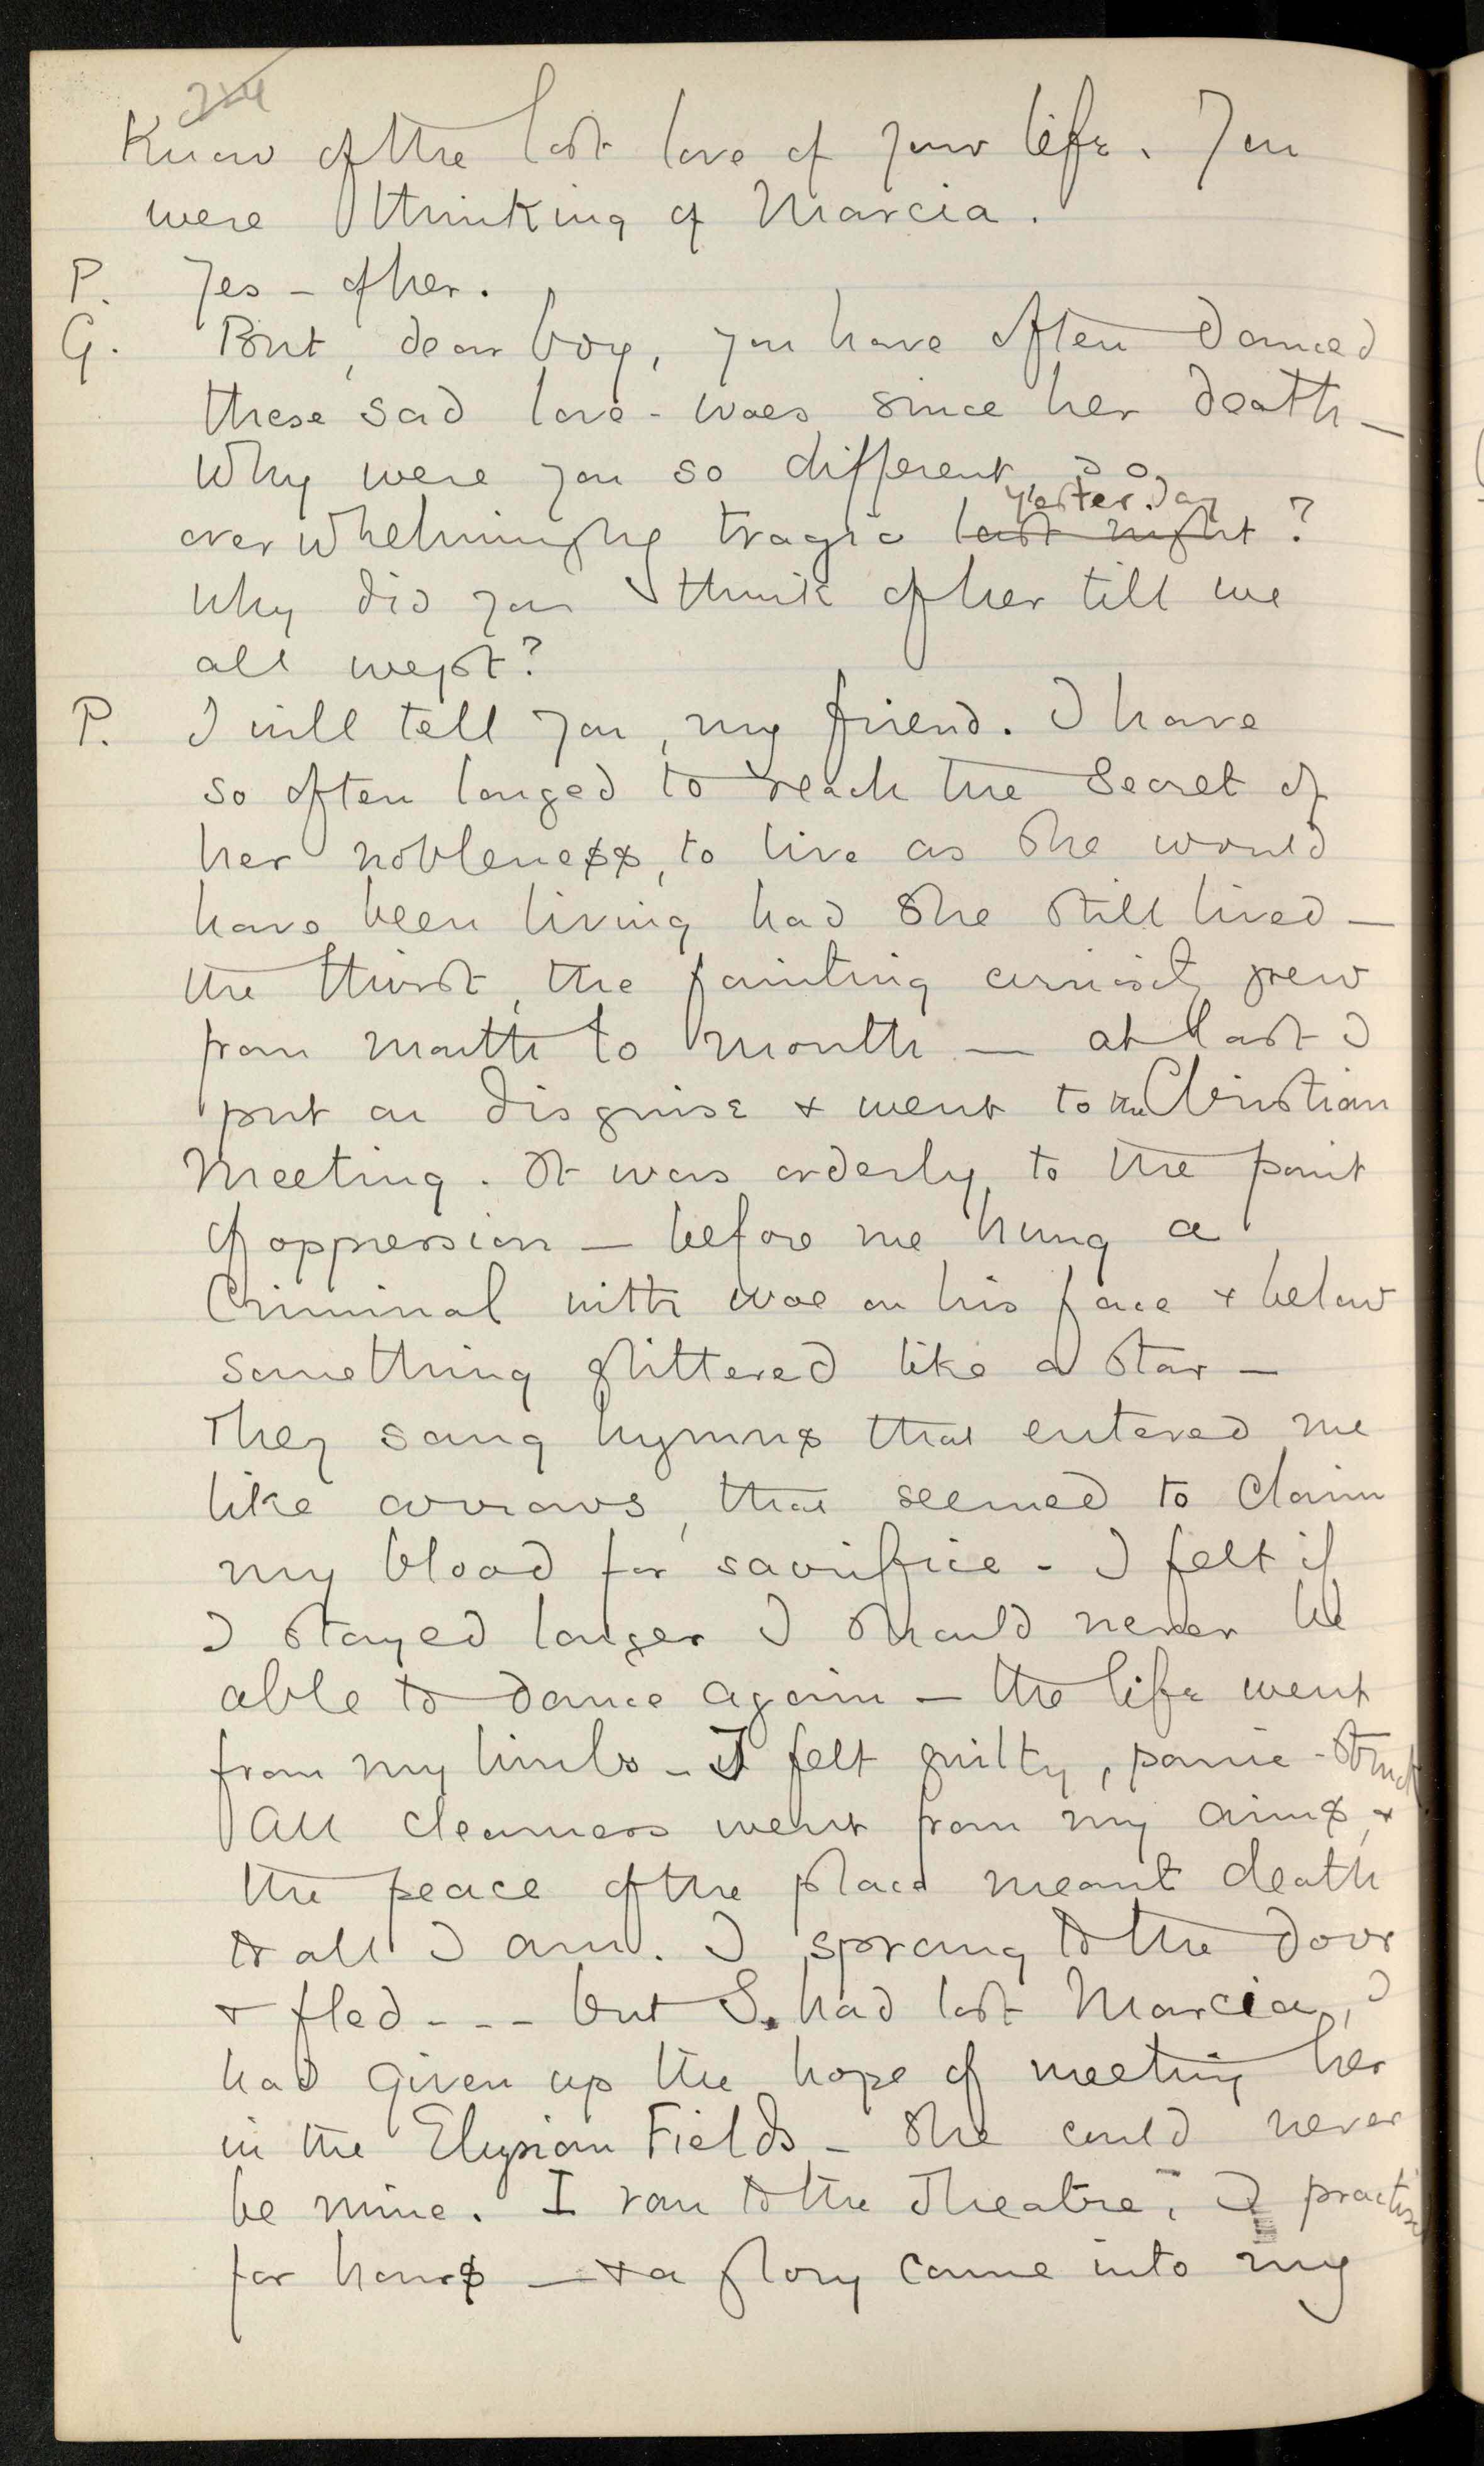 Know of the lost love of your life. You
were thinking of Marcia.
P. Yes – of her.
G. But, dear boy, you have often danced
these sad love-woes since her death –
Why were you so different, so
yesterday
overwhelmingly tragic last night?
Why did you think of her till we
all wept?
P. I will tell you, my friend. I have
so often longed to reach the Secret of
her nobleness, to live as she would
have been living had she still lived –
the thirst, the fainting curiosity grew
from month to month – at last I
put on disguise & went to the Christian
Meeting. It was orderly, to the point
of oppression – before me hung a
Criminal with woe on his face & below
something glittered like a star –
They sang hymns that entered me
like arrows, that seemed to claim
my blood for sacrifice – I felt if
I stayed longer I should never be
able to dance again – the life went
from my limbs – I felt guilty, panic-struck
All clearness went from my aims, &
the peace of the place meant death
to all I am. I sprang to the door
& fled - - - but I had lost Marcia, I
had given up the hope of meeting her
in the Elysian Fields – She could never
be mine. I ran to the Theatre, I practise
for hours – & a glory came into my